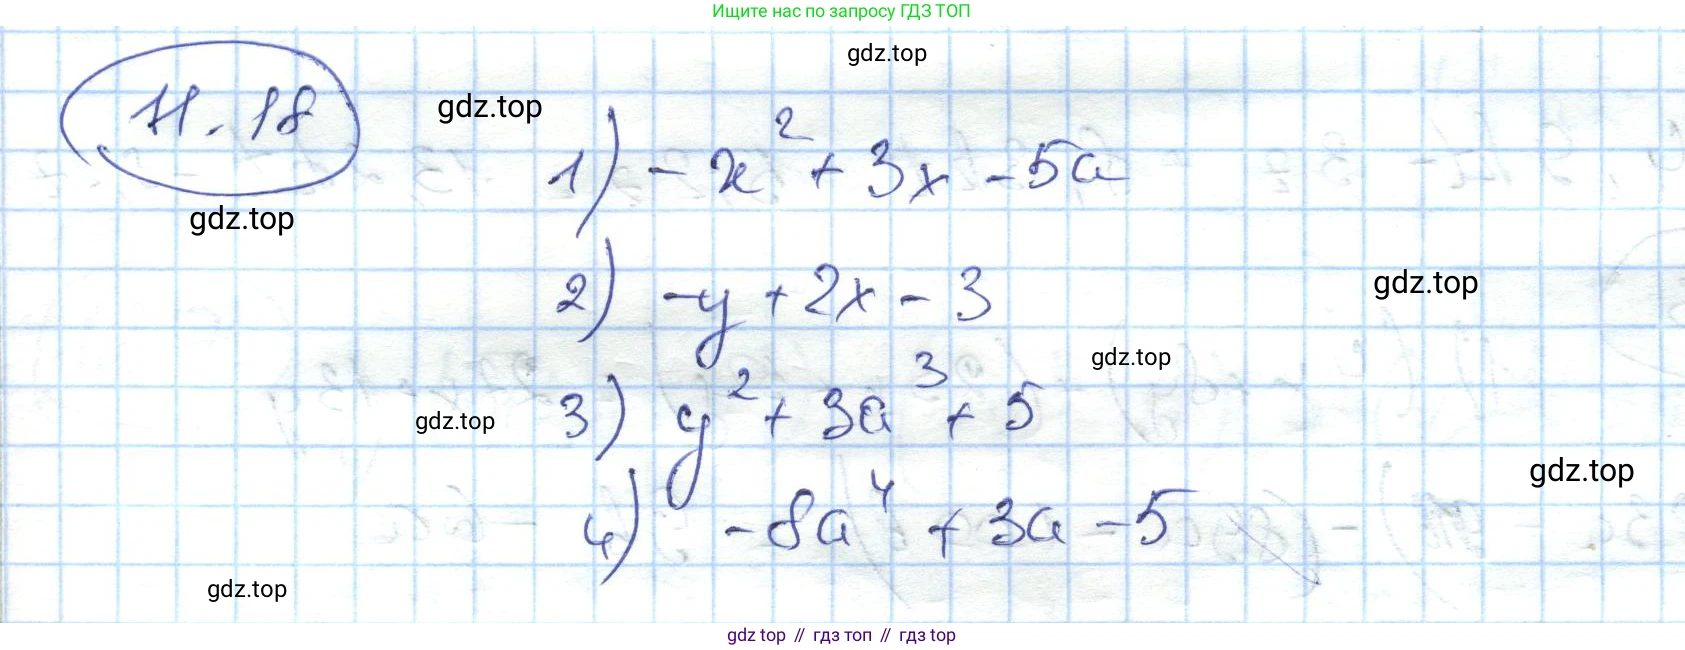 Ищите нас по запросу ГДЗ ТОП
gdz.top
11.18
gdz.top
1) -x² + 3x - 5a
gdz.top
2) -y + 2x - 3
gdz.top
gdz.top
3) y² + 3a³ + 5
gdz.top
gdz.top
4) -8a⁴ + 3a - 5
gdz.top
gdz top // гдз топ // гдз top